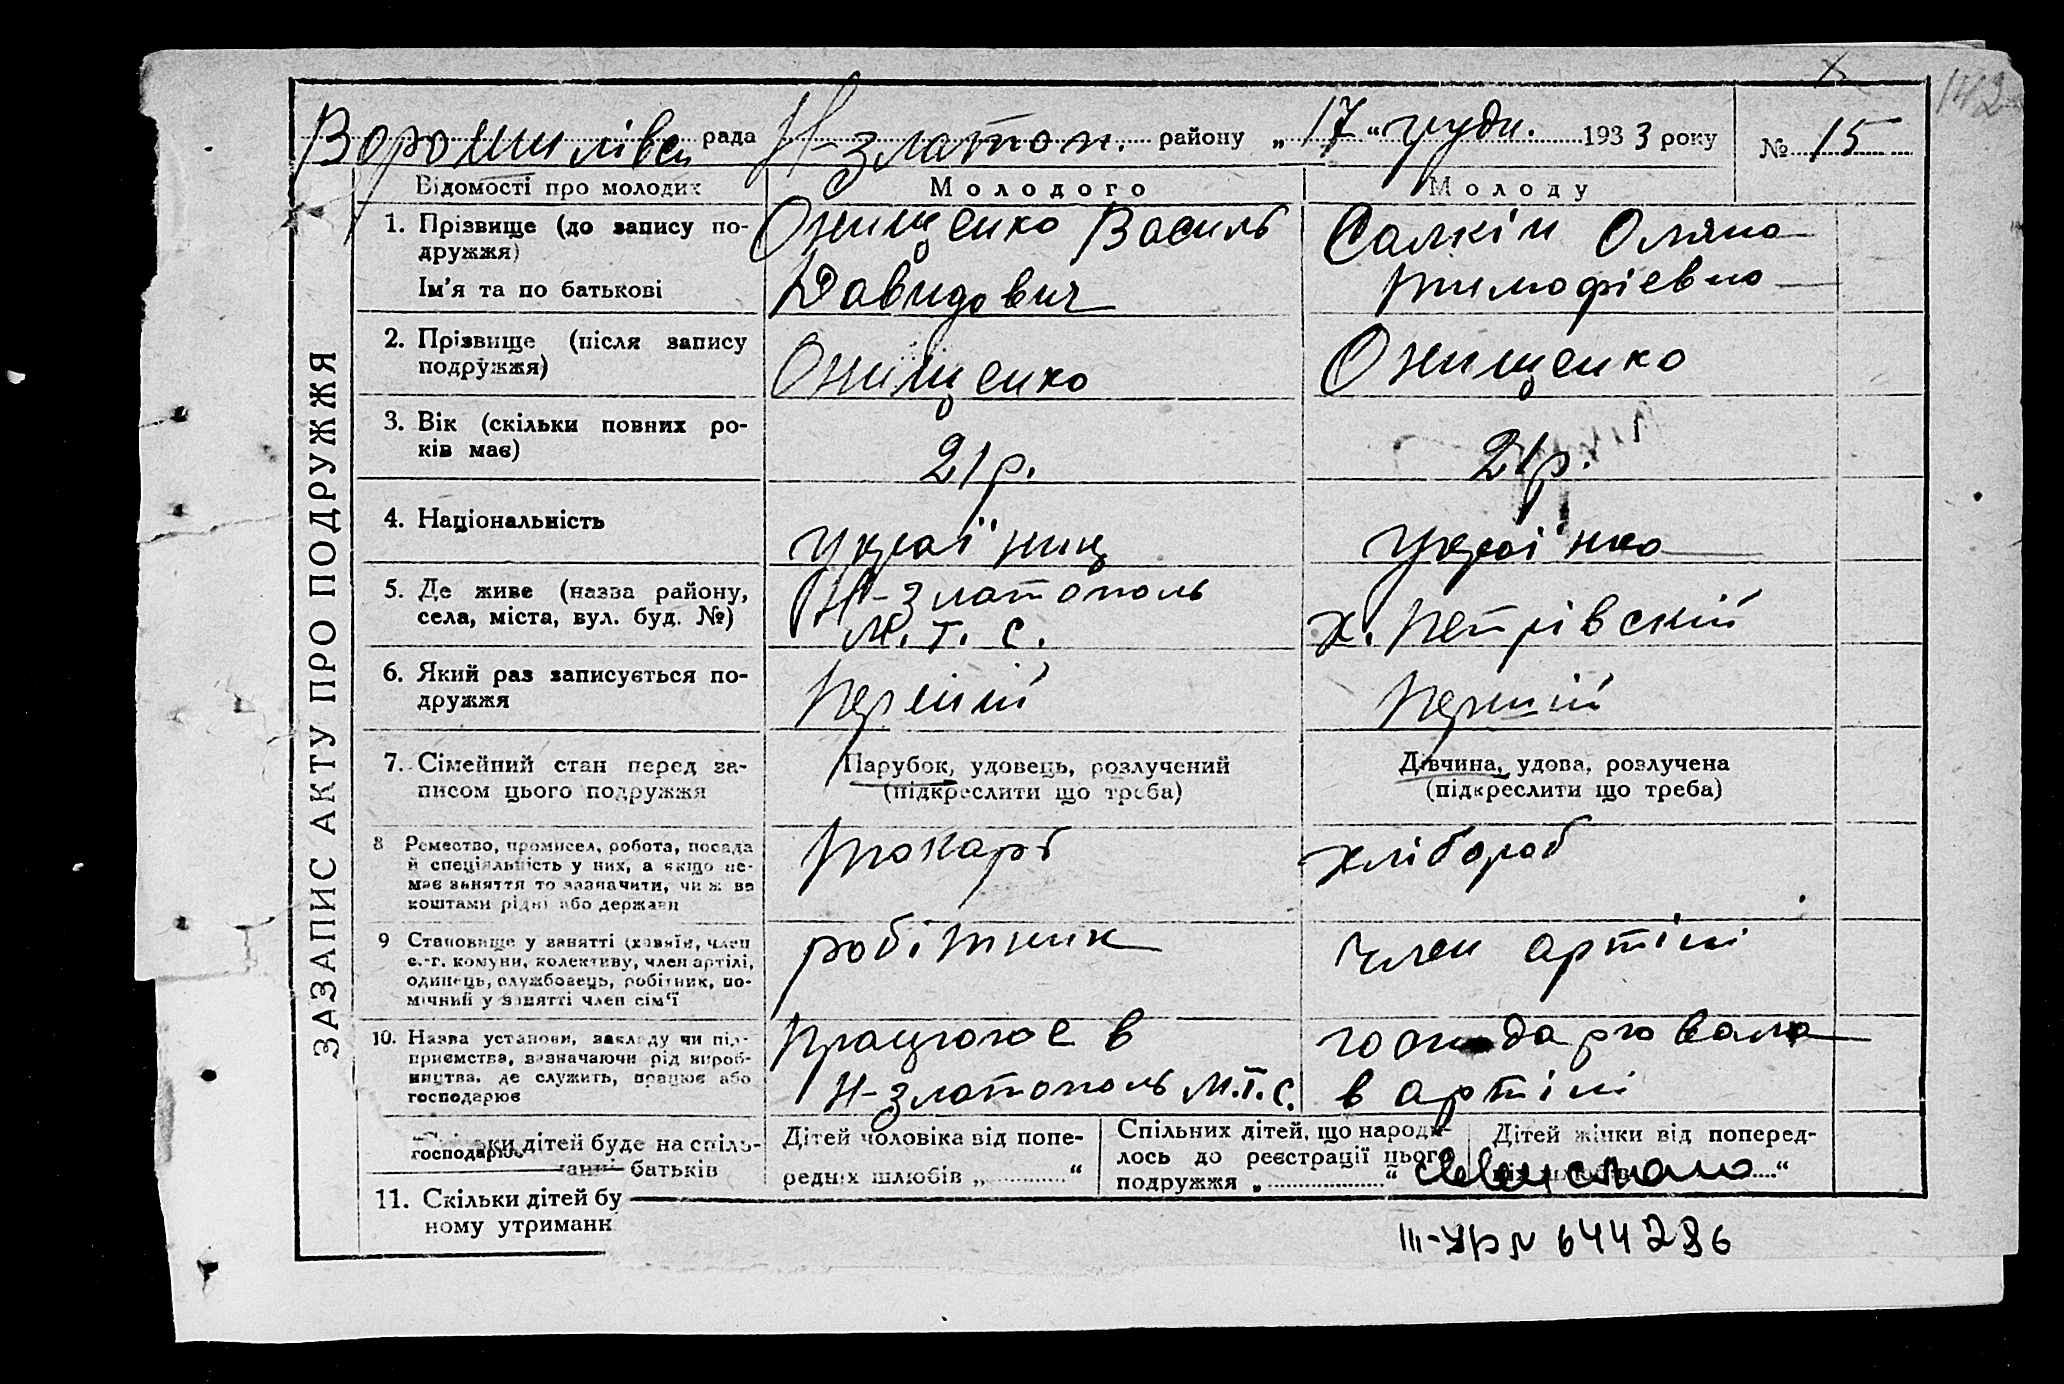 142
Ворошилівськ рада Н-златоп. району „ 17 “ груdn. 1933 року № 15
Відомості про молодих Молодого Молоду
1. Прізвище (до запису по- Онищенко Василь Салкін Оляна
дружжя)
Ім'я та по батькові Давидович Тимофієвна
2. Прізвище (після запису Онищенко Онищенко
подружжя)
3. Вік (скільки повних ро- 21 р. 21 р.
ків має)
4. Національність украї'ниц украї'нка
5. Де живе (назва району, Н-златополь
села, міста, вул. буд. №) М.Т.С. х. Петрівскій
6. Який раз записується по- Перший Перший
дружжя
7. Сімейний стан перед за- Парубок, удовець, розлучений Дівчина, удова, розлучена
писом цього подружжя (підкреслити що треба) (підкреслити що треба)
8 Ремество, промисел, робота, посада Токарь хлібороб
й спеціяльність у них, а якщо не-
має заняття то зазначити, чи ж ва
коштами рідні або держави
9 Становище у занятті (хазяїн, член робітник член артілі
с.-г. комуни, колективу, член артілі,
одинець, службовець, робітник, по-
мічний у занятті член сім'ї
10. Назва установи, закладу чи під- працює в господарювала
приємства, зазначаючи рід вироб-
ництва, де служить, працює або Н-златополь М.Т.С. в артілі
господарює
господарює
ки дітей буде на спіль- Дітей чоловіка від попе- Спільних дітей, що народи- Дітей жінки від поперед-
батьків редніх шлюбів „ “ лось до реєстрації цього
подружжя „ “
11. Скільки дітей бу
ному утриманн
III-УР № 644286
ЗАЗАПИС АКТУ ПРО ПОДРУЖЖЯ